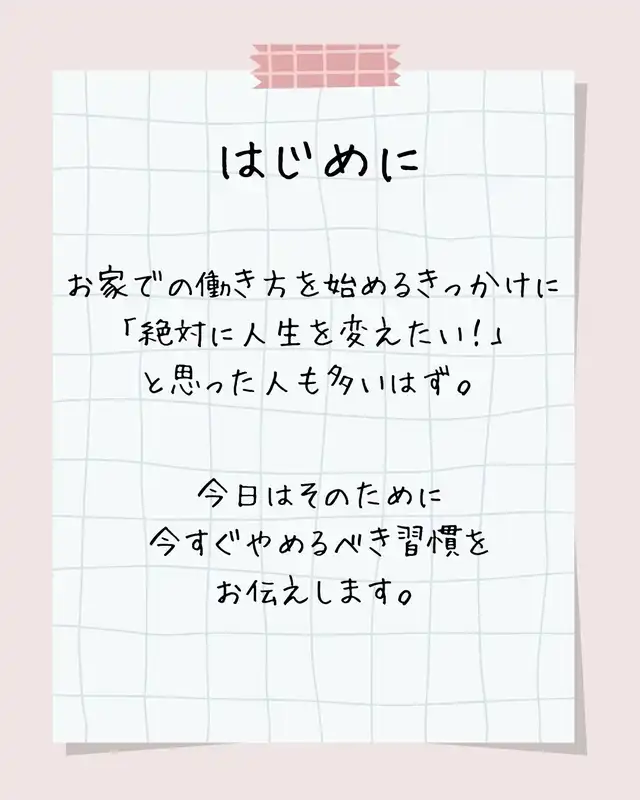 はじめに
お家での働き方を始めるきっかけに
「絶対に人生を変えたい!」
と思った人も多いはず。
今日はそのために
今すぐやめるべき習慣を
お伝えします。